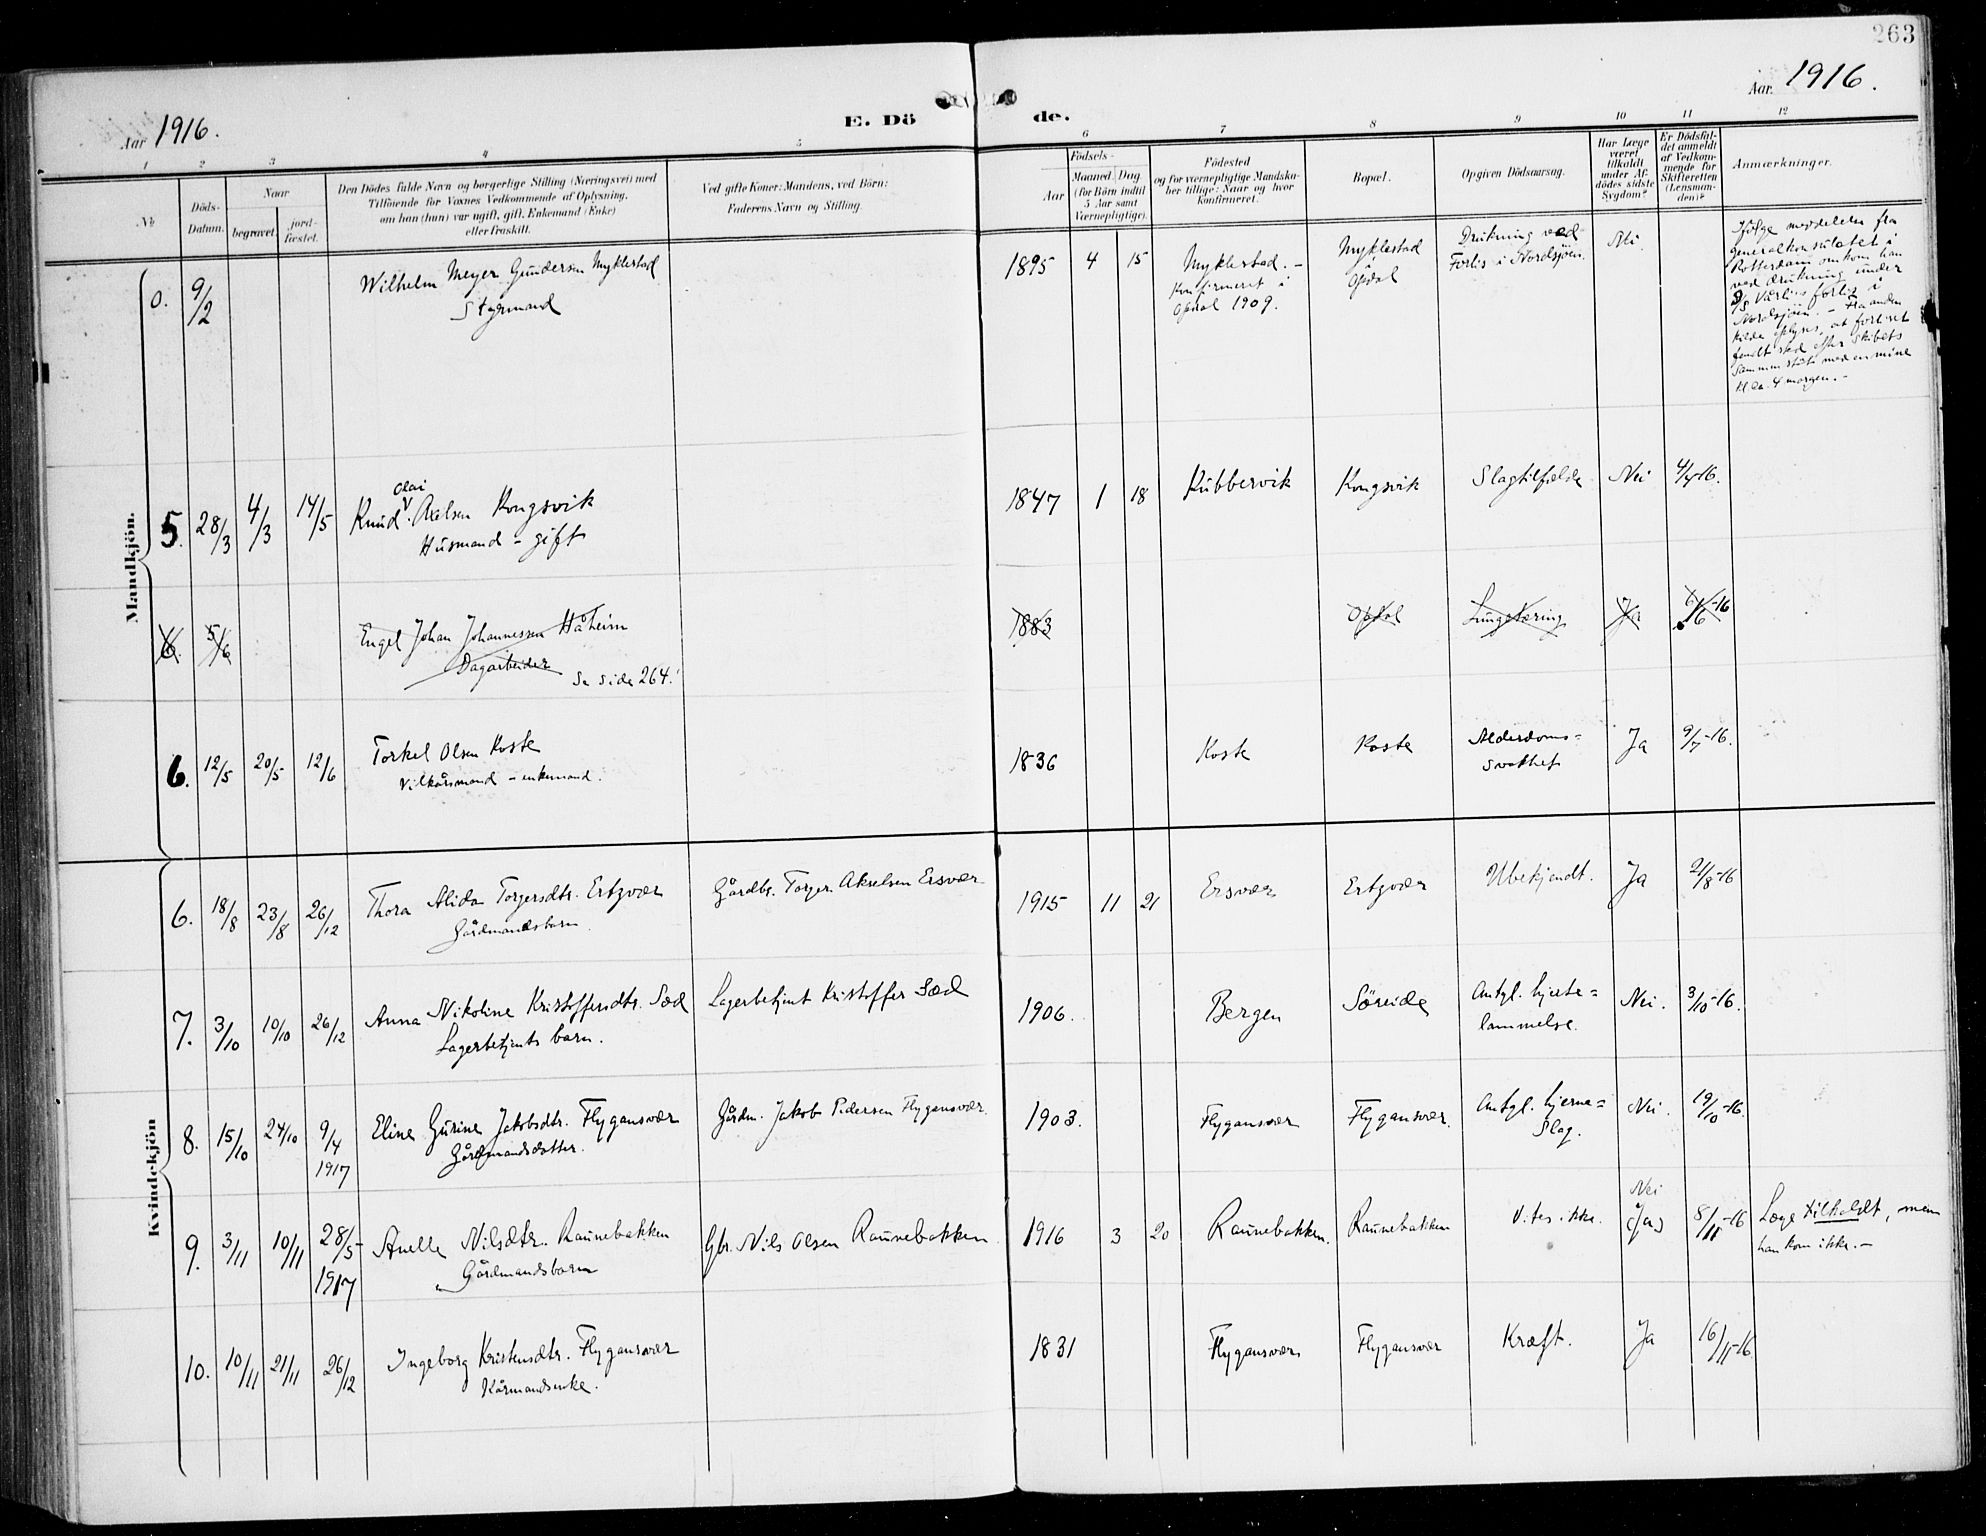 263
Aar 1916.
E. Dö
de.
Aar. 1916.
1 2 3 4 5 6 7 8 9 10 11 12
No
Döds-
Datum.
Naar
begravet.
jord-
fæstet.
Den Dödes fulde Navn og borgerlige Stilling (Næringsvei) med
Tilföiende for Voxnes Vedkommende af Oplysning,
om han (hun) var ugift, gift, Enkemand (Enke)
eller fraskilt.
Ved gifte Koner: Mandens, ved Börn:
Faderens Navn og Stilling.
Födsels-
Aar
Maaned. Dag
(for Börn indtil
5 Aar samt
Værnepligtige).
Födested
og for værnepligtige Mandska-
ber tillige: Naar og hvor
konfirmeret.
Bopæl.
Opgiven Dödsaarsag.
Har Læge
været
tilkaldt
under Af-
dödes sidste
Sygdom?
Er Dödsfal-
det anmeldt
af Vedkom-
mende for
Skifteretten
(Lensman-
den)?
Anmærkninger.
Mandkjön.
0. 9/2 Wilhelm Meyer Gundersen Myklestad
Styrmand
1895 4 15
Myklestad. -
Konfirmeret i
Opdal 1909.
Myklestad
Opdal
Drukning ved
Forlis i Nordsjöen.
Ifölge meddelelse fra
generalkonsulatet i
Rotterdam omkom han
ved drukning under
Nordsjöen. - Fra anden
kilde oplyses, at forliset
fandt sted efter skibets
sammenstöt med en mine
kl. ca. 4 morgen. -
5. 28/3 4/3 14/5 Knud Olai Axelsen Kongsvik
Husmand - gift
1847 1 18 Kubbervik Kongsvik Slagtilfælde Nei 4/4-16.
6. 5/6 Engel Johan Johannessen Håheim
Dagarbeider
Se side 264!
1883 Opdal Lungetæring Ja 6/6-16
6. 12/5 20/5 12/6 Torkel Olsen Koste
Vilkårsmand - enkemand.
1836 Koste Koste Alderdoms=
svakhet Ja 9/7-16.
Kvindekjön
6. 18/8 23/8 26/12 Thora Alida Torgersdtr. Ertzvær
Gårdmandsbarn
Gårdbr. Torger Akselsen Ersvær
1915 11 21 Ersvær Ertzvær Ubekjendt. Ja 21/8-16
7. 3/10 10/10 26/12 Anna Nikoline Kristoffersdtr. Sæd
Lagerbetjents barn.
Lagerbetjent Kristoffer Sæd
1906. Bergen Söreide Antgl. hjerte=
lammelse. Nei. 3/10-16.
8. 15/10 24/10 9/4 1917 Eline Gurine Jakobsdtr. Flygansvær
Gårdmandsdatter.
Gårdm. Jakob Pedersen Flygansvær
1903. Flygansvær Flygansvær. Antgl. hjerne=
Slag. Nei. 19/10-16.
9. 3/11 10/11 28/5-1917 Anelle Nilsdtr. Raunebakken
Gårdmandsbarn
Gbr. Nils Olsen Raunebakken
1916 3 20 Raunebakken. Raunebakken Vites ikke. Nei
(Ja) 8/11-16 Læge tilkaldt, men
han kom ikke. -
10. 10/11 21/11 26/12 Ingeborg Kristensdtr. Flygansvær
Kårmandsenke.
1831 Flygansvær Flygansvær Kræft. Ja 16/11-16.